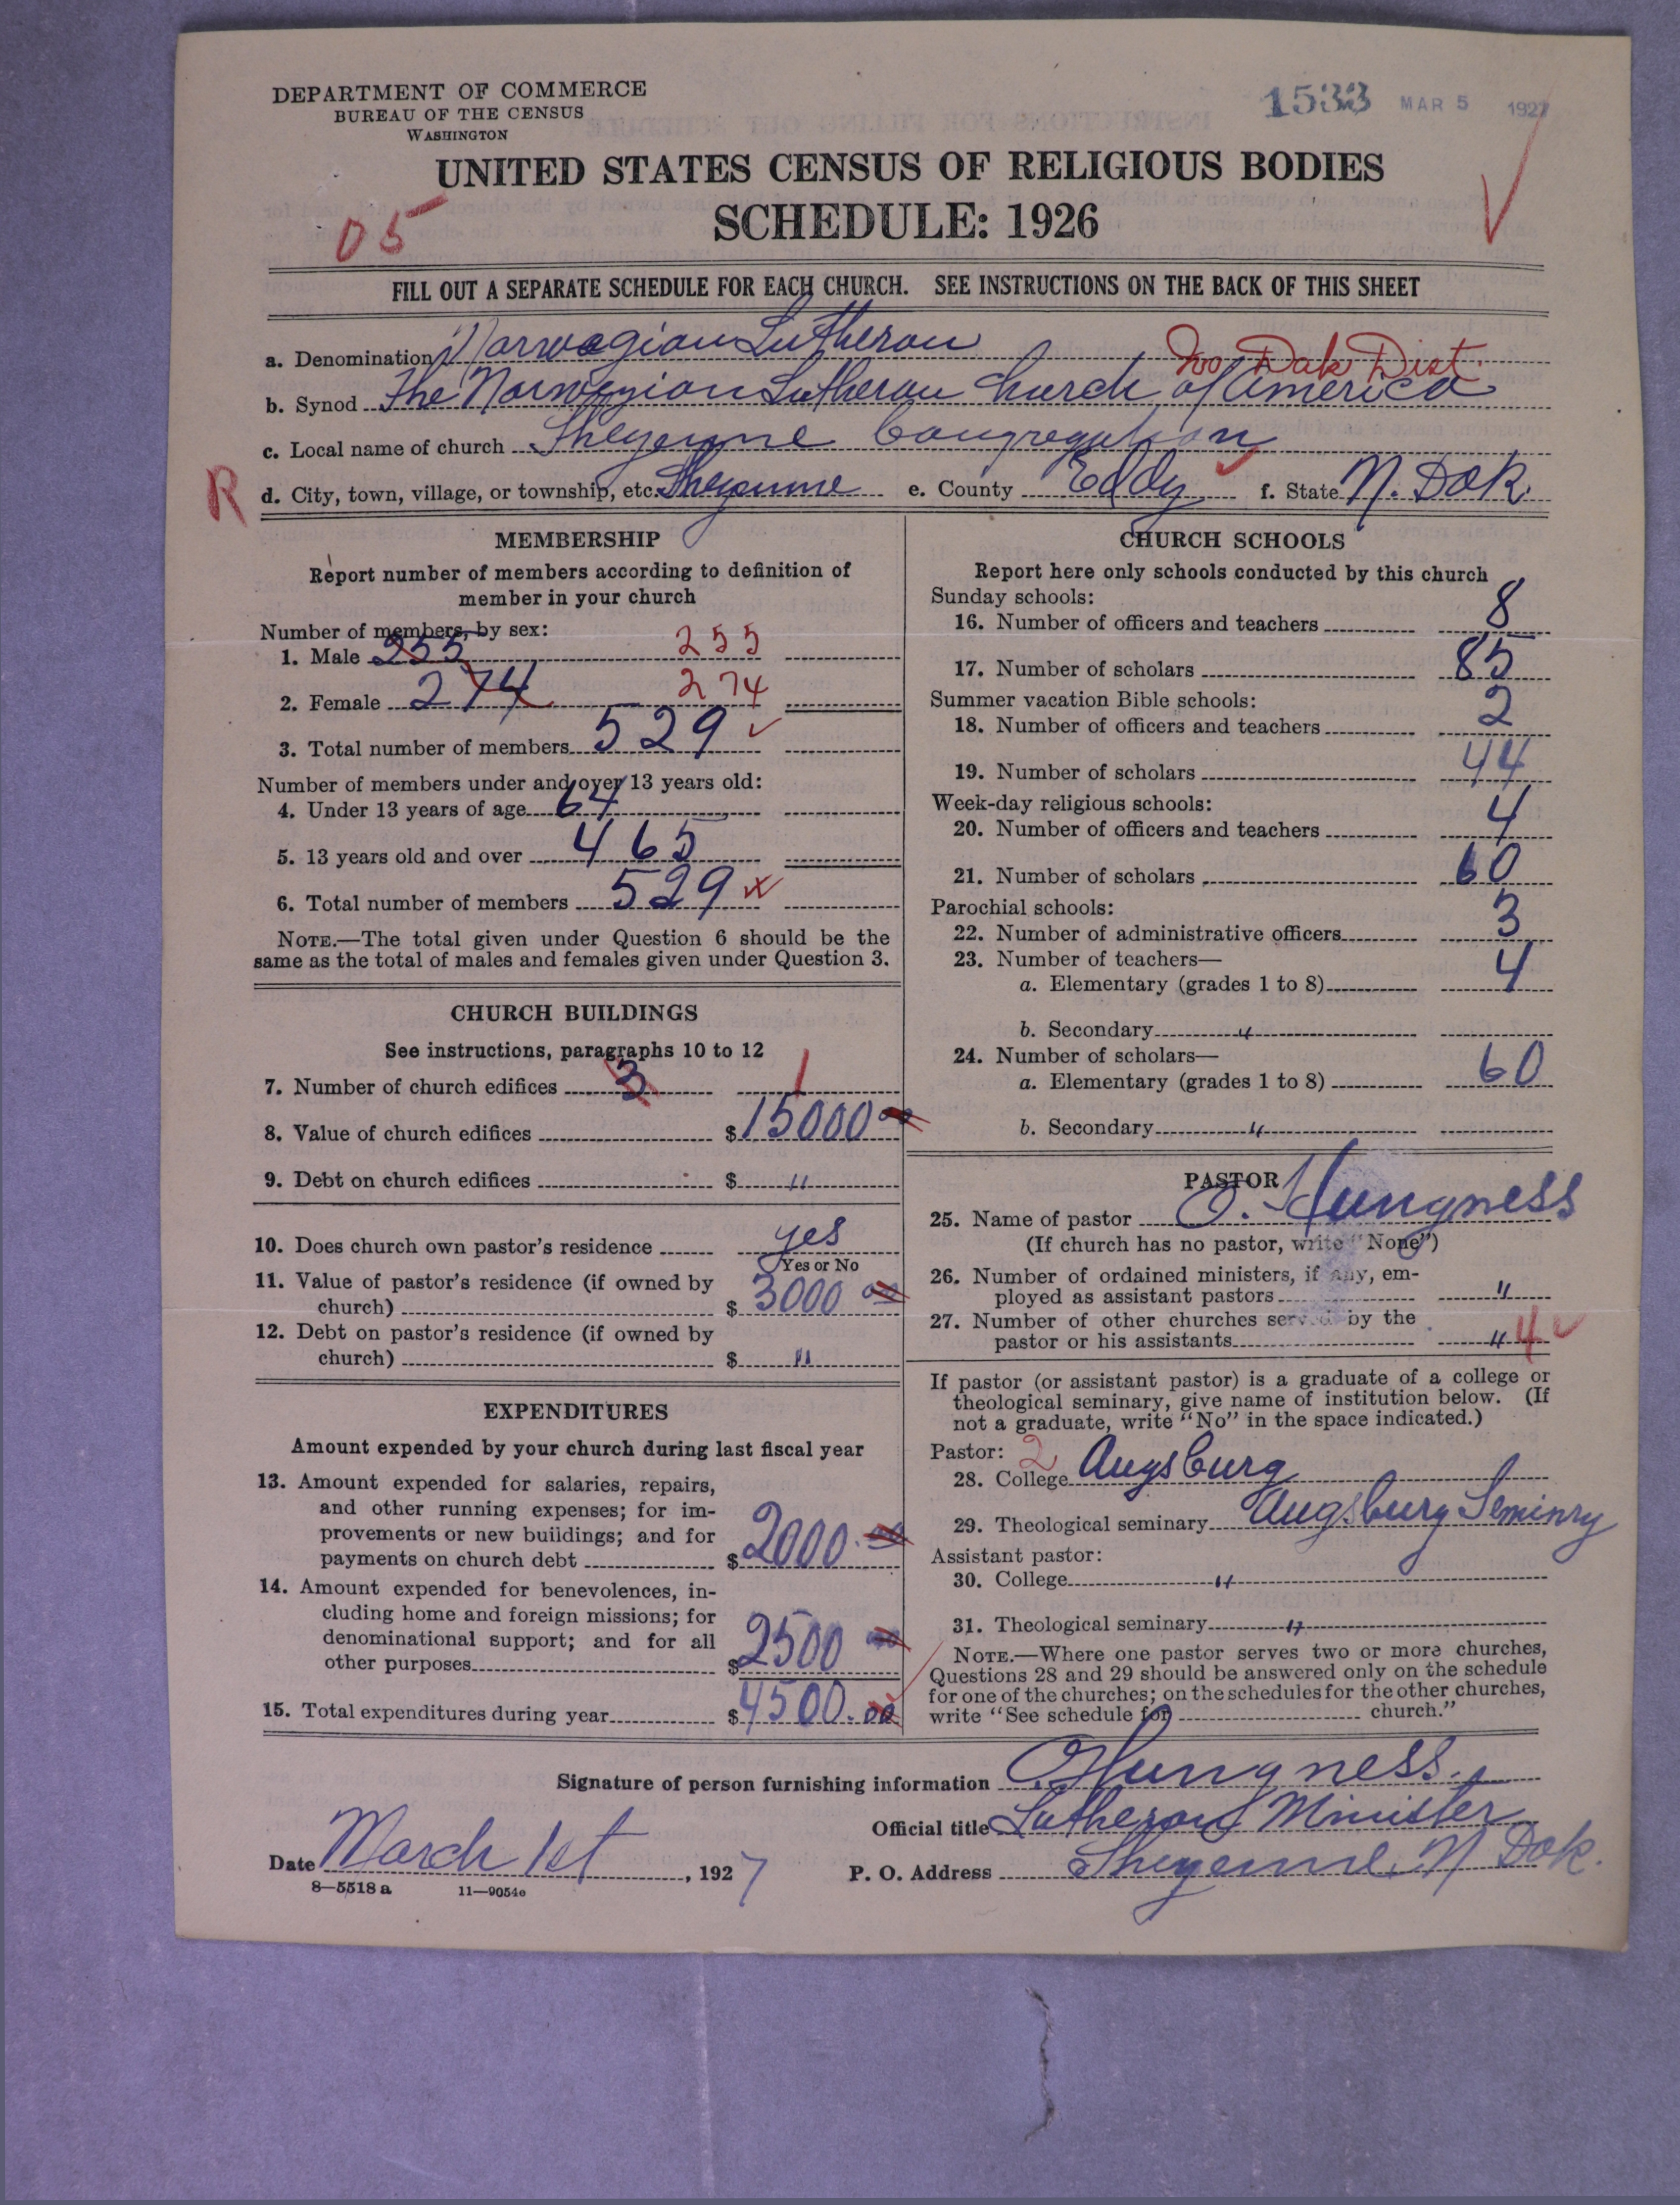 DEPARTMENT OF COMMERCE
BUREAU OF THE CENSUS
WASHINGTON
1533 MAR 5 1927
UNITED STATES CENSUS OF RELIGIOUS BODIES
SCHEDULE: 1926
05
FILL OUT A SEPARATE SCHEDULE FOR EACH CHURCH. SEE INSTRUCTIONS ON THE BACK OF THIS SHEET
a. Denomination Norwegian Lutheran No Dak Dist.
b. Synod The Norwegian Lutheran Church of America
c. Local name of church Sheyenne Congregation
R d. City, town, village, or township, etc. Sheyenne e. County Eddy f. State N. Dak.
MEMBERSHIP
Report number of members according to definition of
member in your church
Number of members, by sex:
1. Male 255 255
2. Female 274 274
3. Total number of members 529
Number of members under and over 13 years old:
4. Under 13 years of age 64
5. 13 years old and over 465
6. Total number of members 529
NOTE.—The total given under Question 6 should be the
same as the total of males and females given under Question 3.
CHURCH BUILDINGS
See instructions, paragraphs 10 to 12
7. Number of church edifices 3 1
8. Value of church edifices $ 15000 00
9. Debt on church edifices $ "
10. Does church own pastor's residence yes
Yes or No
11. Value of pastor's residence (if owned by
church) $ 3000 00
12. Debt on pastor's residence (if owned by
church) $ "
EXPENDITURES
Amount expended by your church during last fiscal year
13. Amount expended for salaries, repairs,
and other running expenses; for im-
provements or new buildings; and for
payments on church debt $ 2000.00
14. Amount expended for benevolences, in-
cluding home and foreign missions; for
denominational support; and for all
other purposes $ 2500 00
15. Total expenditures during year $ 4500.00
CHURCH SCHOOLS
Report here only schools conducted by this church
Sunday schools:
16. Number of officers and teachers 8
17. Number of scholars 85
Summer vacation Bible schools:
18. Number of officers and teachers 2
19. Number of scholars 44
Week-day religious schools:
20. Number of officers and teachers 4
21. Number of scholars 60
Parochial schools:
22. Number of administrative officers 3
23. Number of teachers—
a. Elementary (grades 1 to 8) 4
b. Secondary "
24. Number of scholars—
a. Elementary (grades 1 to 8) 60
b. Secondary "
PASTOR
25. Name of pastor O. Hungness
(If church has no pastor, write "None")
26. Number of ordained ministers, if any, em-
ployed as assistant pastors "
27. Number of other churches served by the
pastor or his assistants " 4
If pastor (or assistant pastor) is a graduate of a college or
theological seminary, give name of institution below. (If
not a graduate, write "No" in the space indicated.)
Pastor: 2
28. College Augsburg
29. Theological seminary Augsburg Seminry
Assistant pastor:
30. College "
31. Theological seminary "
NOTE.—Where one pastor serves two or more churches,
Questions 28 and 29 should be answered only on the schedule
for one of the churches; on the schedules for the other churches,
write "See schedule for church."
Signature of person furnishing information O Hungness.
Official title Lutheran Minister
Date March 1st, 1927 P. O. Address Sheyenne, N Dak.
8—5518 a 11—9054e